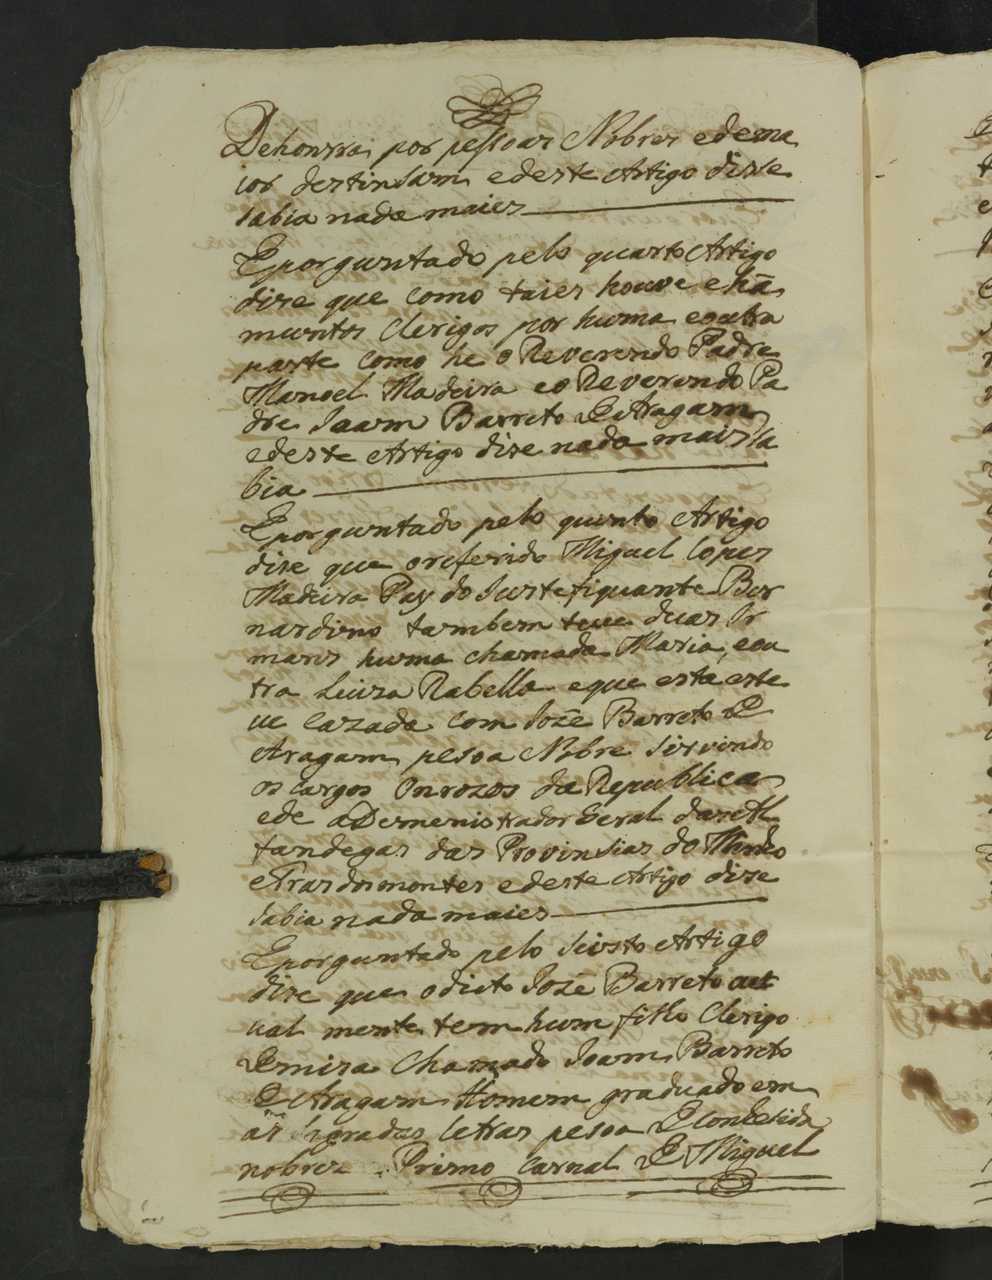 Dehonrra por pessoas Nobres edema
ior destinsam edeste Artigo disse
sabia nada maies
Eporguntado pelo quarto Artigo
dise que como taies houve ehá
muntos Clerigos por huma eoutra
parte como he o Reverendo Padre
Manoel Madeira eo Reverendo Pa
dre Joam Barreto de Aragam
edeste Artigo dise nada mais sa
bia
Eporguntado pelo quinto Artigo
dise que oreferido Miguel Lopes
Madeira Pay do Justefiquante Ber
nardino tambem teve duas Ir
mans huma chamada Maria, eou
tra Luiza Rabella eque esta este
ve cazada com Jozé Barreto de
Aragam pesoa Nobre servindo
os cargos Onrozos da Republica
ede aDemenistrador Geral dasAl
fandegas das Provinsias do Minho
eTras dosmontes edeste Artigo dise
sabia nada maies
Eporguntado pelo seisto Artigo
dise que odicto Jozé Barreto aut
ual mente tem hum filho Clerigo
de misa Chamado Joam Barreto
de Aragam Homem graduado em
as sagradas letras pesoa de conhesida
nobrez Primo Carnal de Miguel